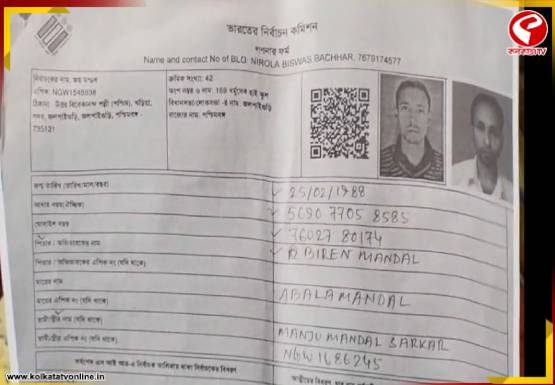 ভারতের নির্বাচন কমিশন
গণনার ফর্ম
Name and contact No of BLO: NIROLA BISWAS BACHHAR, 7679174577
নির্বাচকের নাম: জয় মন্ডল
এপিক: NGW1545938
ঠিকানা: উত্তর বিবেকানন্দ পল্লী (পশ্চিম), খড়িয়া,
সদর, জলপাইগুড়ি, জলপাইগুড়ি, পশ্চিমবঙ্গ -
735121
ক্রমিক সংখ্যা: 42
অংশ নম্বর ও নাম: 169
বিধানসভা/লোকসভা -র নাম: জলপাইগুড়ি
রাজ্যের নাম: পশ্চিমবঙ্গ
জন্ম তারিখ (তারিখ/মাস/বছর)
25/02/1988
আধার নম্বর(ঐচ্ছিক)
5690 7705 8585
মোবাইল নম্বর
76027 80174
পিতার/ অভিভাবকের নাম
R BIREN MANDAL
পিতার / অভিভাবকের এপিক নং (যদি থাকে)
মায়ের নাম
ABALA MANDAL
মায়ের এপিক নং (যদি থাকে)
স্বামী/স্ত্রীর নাম (যদি থাকে)
MANJU MANDAL SARKAR
স্বামী/স্ত্রীর এপিক নং (যদি থাকে)
NGW1686245
সর্বশেষ এস আই আর-এ নির্বাচক তালিকায় থাকা নির্বাচকের বিবরণ
কলকাতাTV
www.kolkatatvonline.in